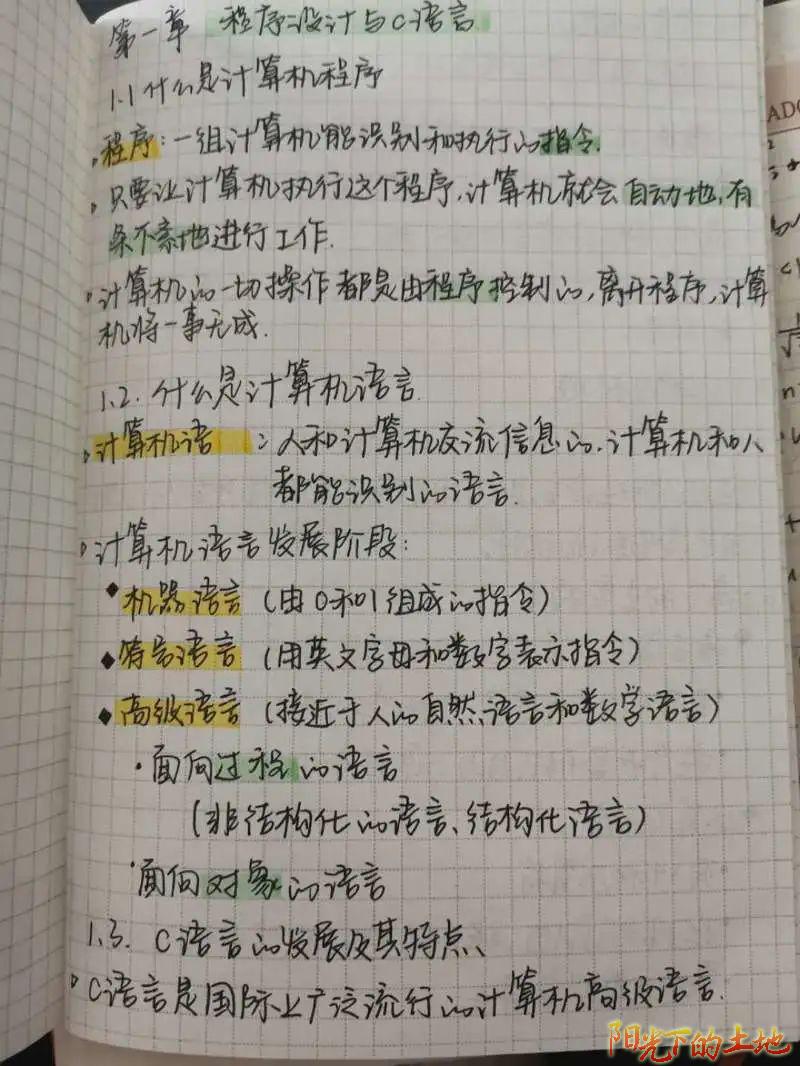 第一章 程序设计与C语言
1.1 什么是计算机程序
程序：一组计算机能识别和执行的指令.
只要让计算机执行这个程序，计算机就会自动地，有
条不紊地进行工作.
计算机的一切操作都是由程序控制的，离开程序，计算
机将一事无成.
1.2. 什么是计算机语言
计算机语：人和计算机交流信息的、计算机和人
都能识别的语言.
计算机语言发展阶段：
机器语言（由0和1组成的指令）
符号语言（用英文字母和数字表示指令）
高级语言（接近于人的自然语言和数学语言）
·面向过程的语言
（非结构化的语言、结构化语言）
·面向对象的语言
1.3. C语言的发展及其特点、
C语言是国际上广泛流行的计算机高级语言.
阳光下的土地